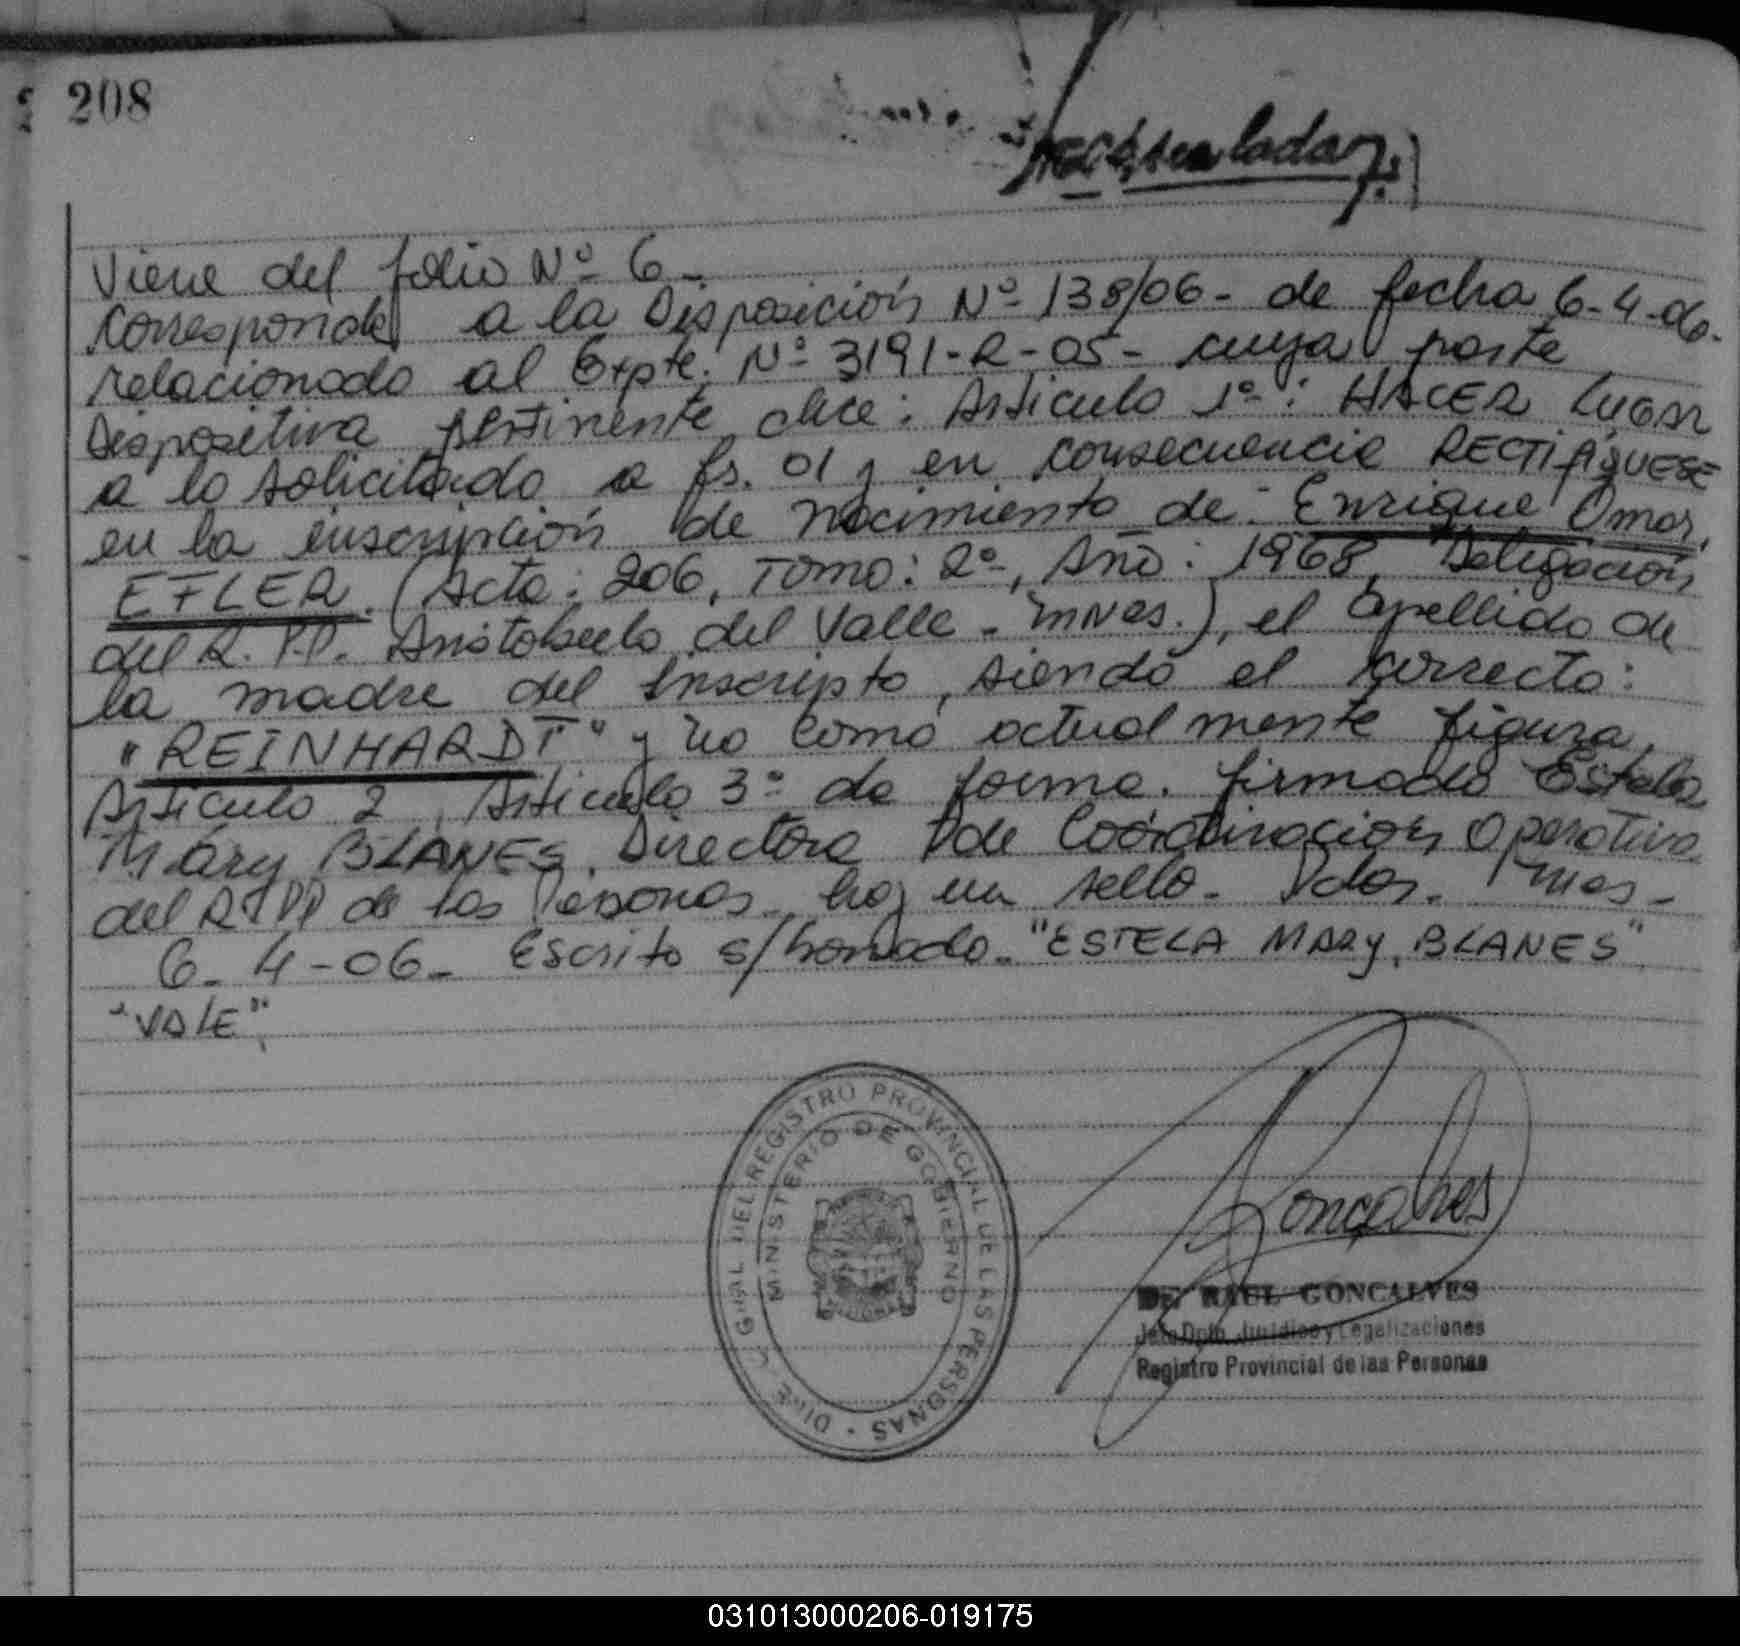 208
Viene del folio Nº 6 -
Corresponde a la Disposición Nº 138/06 - de fecha 6-4-06.
relacionado al Expte. Nº 3191-R-05 - cuya parte
Dispositiva pertinente dice: Artículo 1º: HACER LUGAR
a lo solicitado a fs. 01 y en consecuencia RECTIFÍQUESE
en la inscripción de nacimiento de: Enrique Omar,
EFLER. (Acta: 206, Tomo: 2º, Año: 1968, Delegación
del R.P.P. Aristóbulo del Valle - Mnes.), el apellido de
la madre del inscripto, siendo el correcto:
"REINHARDT" y no como actualmente figura,
Artículo 2, Artículo 3º de forma. firmado Estela
Mary BLANES. Directora de Coordinación Operativa
del R.P.P de las Personas - hay un sello - Pdas. Mnes -
6-4-06 - Escrito s/borrado - "ESTELA MARY, BLANES"
"VALE",
DIREC. GRAL DEL REGISTRO PROVINCIAL DE LAS PERSONAS
MINISTERIO DE GOBIERNO
Goncalves
DR. RAUL GONCALVES
Jefe Dpto. Jurídico y Legalizaciones
Registro Provincial de las Personas
031013000206-019175